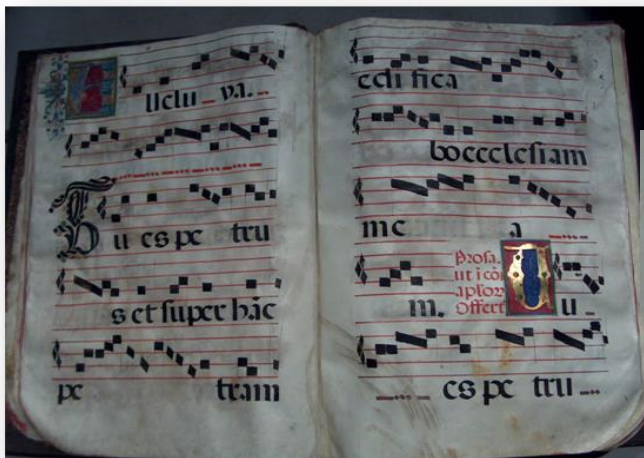 Alleluya.
Tu es pe tru
s et super hāc
pe tram
edi fica
boecclesiam
me a
m.
Prosa.
ut i cōi
aplor
Offert
Tu
es pe tru